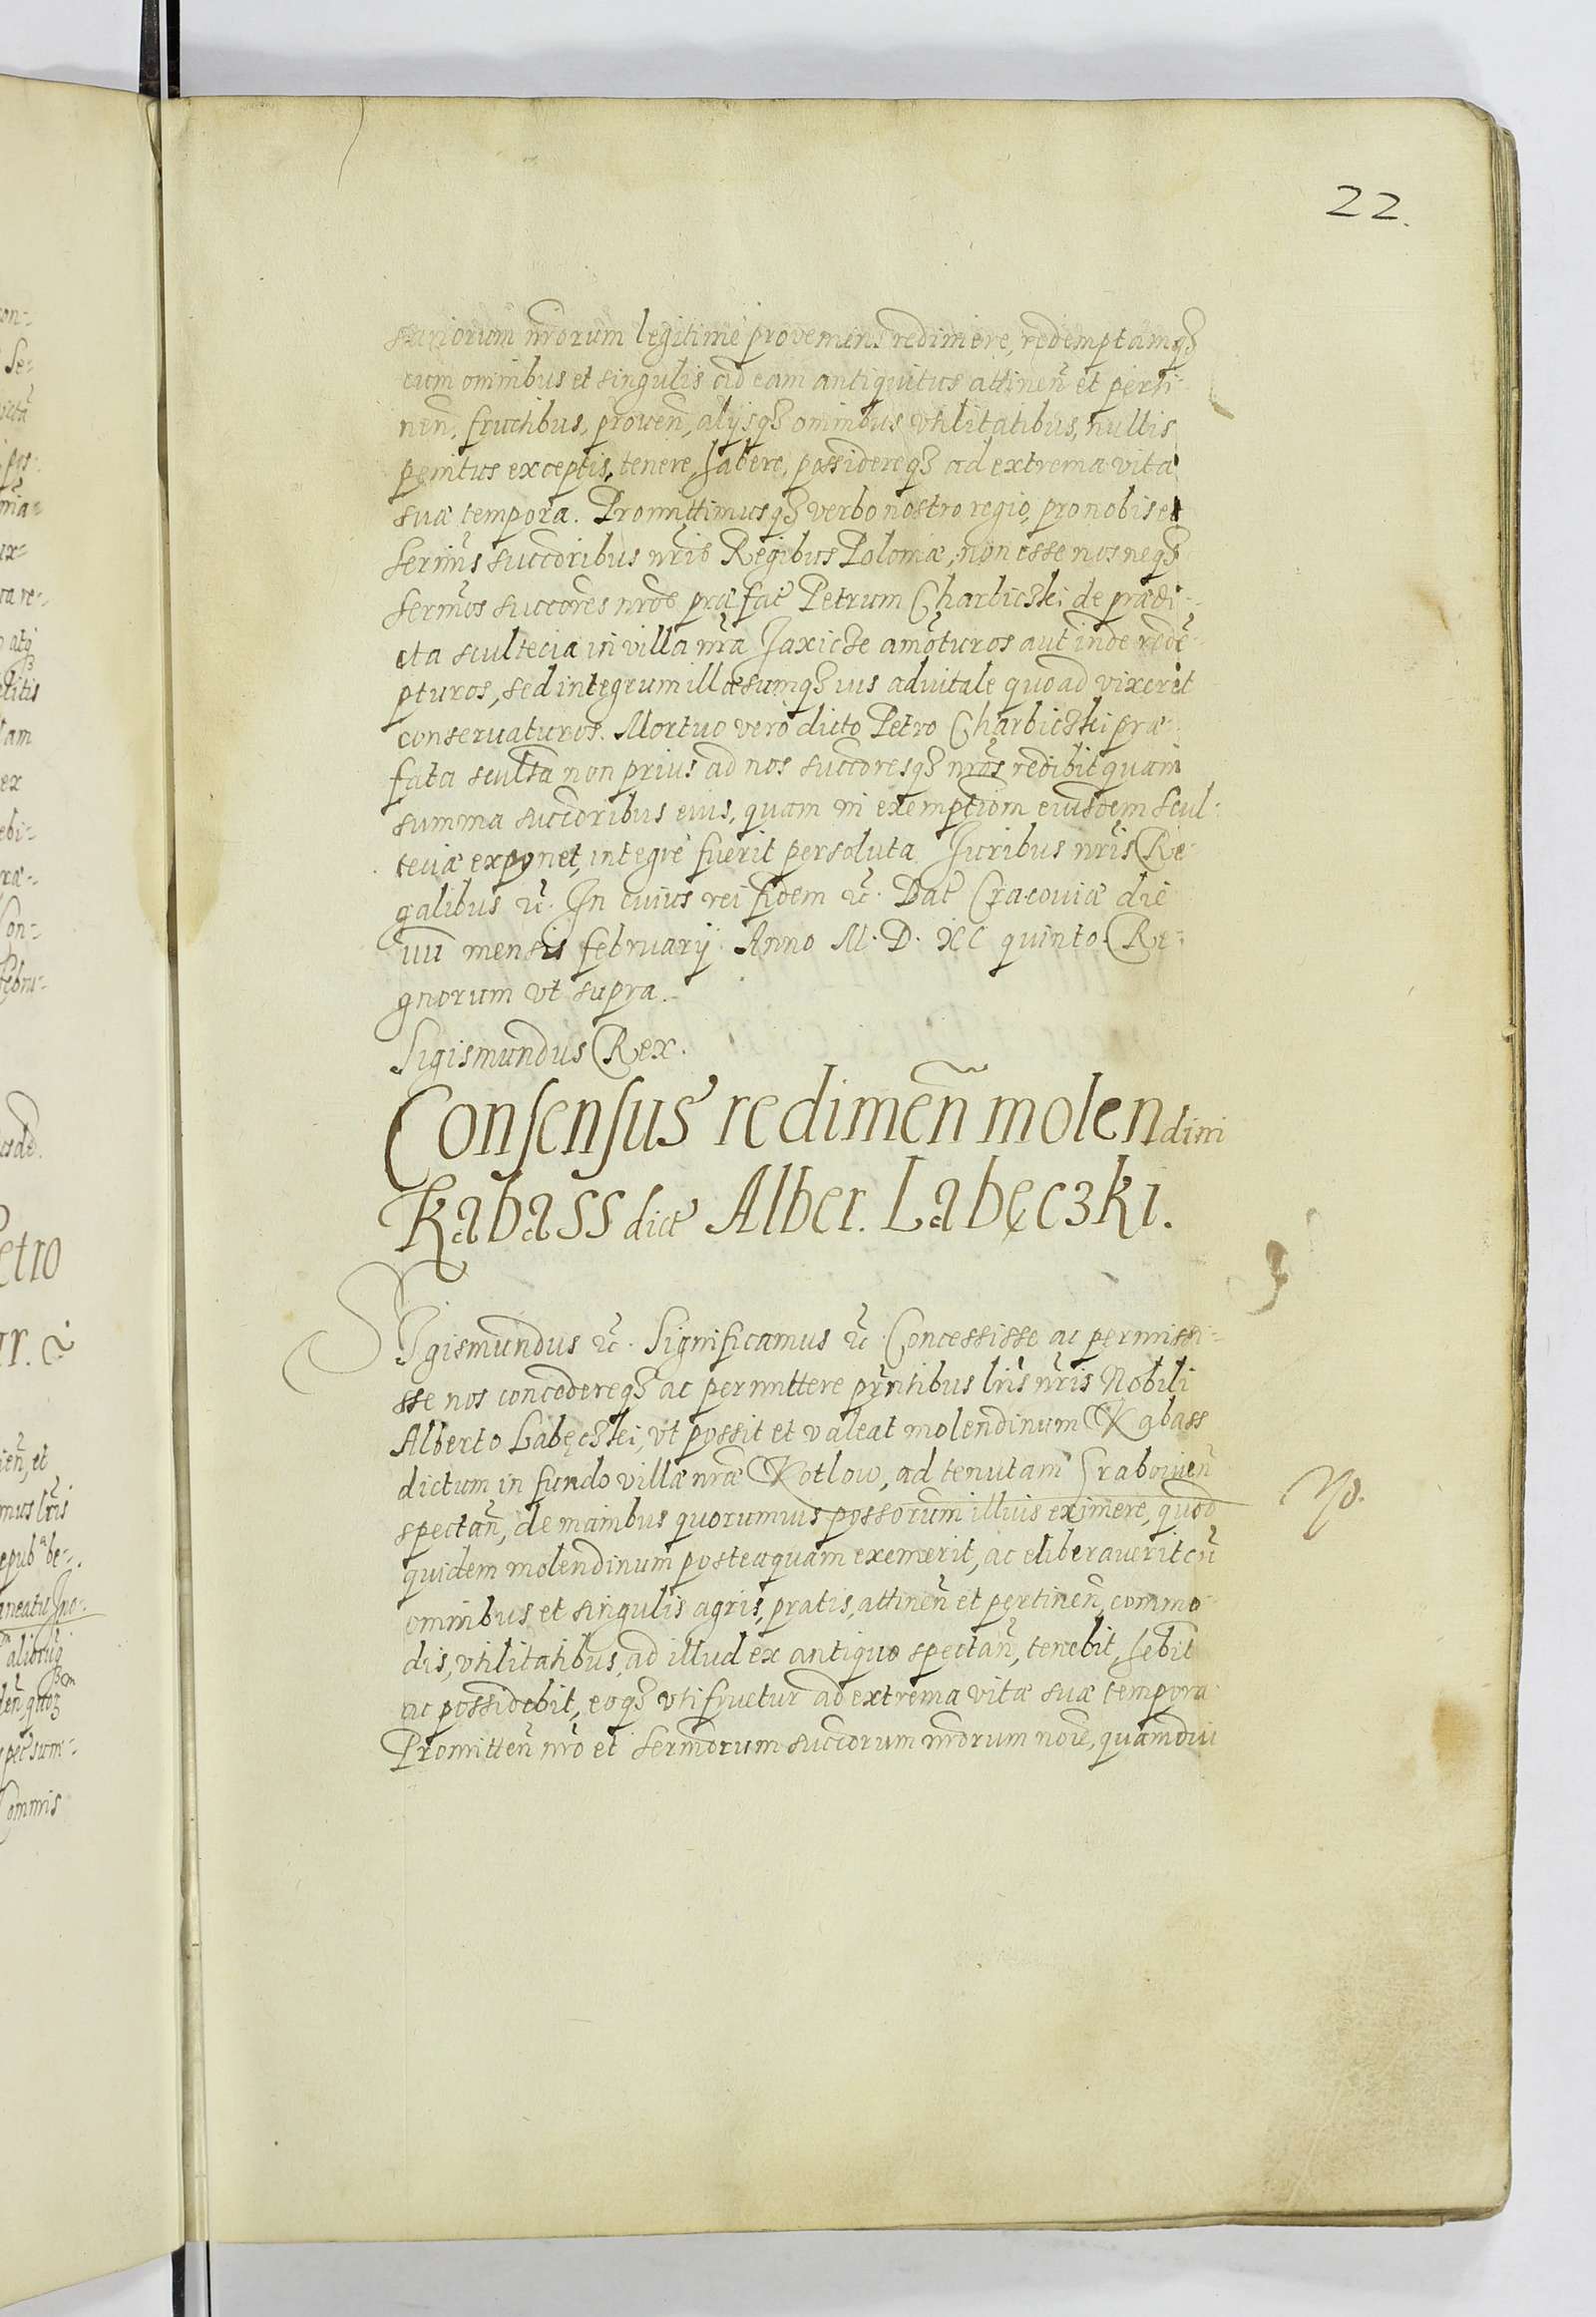 22.
sariorum nrōrum legitime proveniens redimere, redemptamqȝ
cum omnibus et singulis ad eam antiquitus attineñ et perti-
neñ, fructibus, proueñ, alijsqȝ omnibus vtilitatibus, nullis
penitus exceptis, tenere, habere, possidereqȝ ad extrema vitæ
suæ tempora. Promittimusqȝ verbo nostro regio, pro nobis et
Sermis succoribus nris Regibus Poloniæ, non esse nos neqȝ
Sermos succores nros præfat Petrum Charbiczki de prædi-
cta scultecia in villa nra Jaxicze amoturos aut inde redē-
pturos, sed integrum illæsumqȝ ius aduitale quoad vixerit
conseruaturos. Mortuo vero dicto Petro Charbiczki præ-
fata sculta non prius ad nos succoresqȝ nros redibit quam
summa succoribus eius, quam in exemptiom eiusdem scul-
teciæ exponet, integre fuerit persoluta. Juribus nris Re-
galibus etc. In cuius rei fidem etc. Dat Cracouiæ die
VII mensis februarij. Anno M. D. XC quinto. Re-
gnorum vt supra.
Sigismundus Rex.
Consensus redimeñ molendini
Kabass dict Alber. Labęczki.
Sigismundus etc. Significamus etc. Concessisse ac permisi-
sse nos concedereqȝ ac permittere pr̄ntibus lris nris Nobili
Alberto Labęczki, vt possit et valeat molendinum Kabass
dictum in fundo villæ nræ Kotlow, ad tenutam Graboiueñ
spectañ, de manibus quorumuis possorum illius eximere, quod
quidem molendinum posteaquam exemerit, ac eliberauerit cū
omnibus et singulis agris, pratis, attineñ et pertineñ, commo-
dis, vtilitatibus, ad illud ex antiquo spectañ, tenebit, hebit
ac possidebit, eoqȝ vtifruetur ad extrema vitæ suæ tempora.
Promitteñ nro et Sermorum succorum nrorum noie, quamdiu